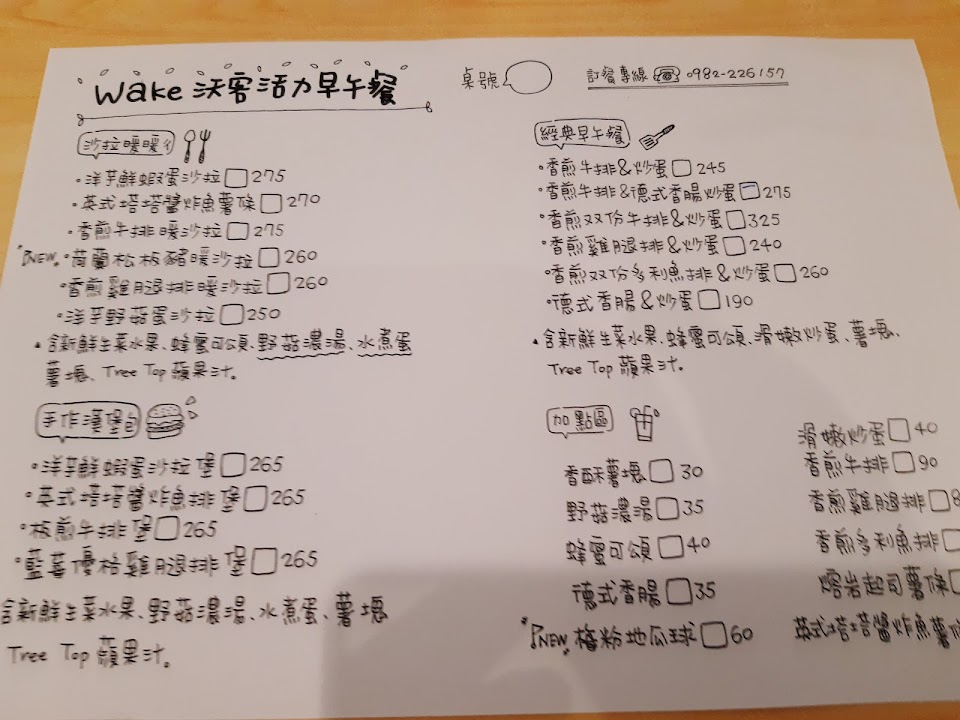 Wake 沃客活力早午餐
桌號
訂餐專線 0982-226157
沙拉暖暖ㄉ
·洋芋鮮蝦蛋沙拉 275
·英式塔塔醬炸魚薯條 270
·香煎牛排暖沙拉 275
NEW 荷蘭松板豬暖沙拉 260
·香煎雞腿排暖沙拉 260
·洋芋野菇蛋沙拉 250
含新鮮生菜水果、蜂蜜可頌、野菇濃湯、水煮蛋
薯塊、Tree Top 蘋果汁。
手作漢堡包
·洋芋鮮蝦蛋沙拉堡 265
·英式塔塔醬炸魚排堡 265
·板煎牛排堡 265
·藍莓優格雞腿排堡 265
含新鮮生菜水果、野菇濃湯、水煮蛋、薯塊
Tree Top 蘋果汁。
經典早午餐
·香煎牛排&炒蛋 245
·香煎牛排&德式香腸炒蛋 275
·香煎双份牛排&炒蛋 325
·香煎雞腿排&炒蛋 240
·香煎双份多利魚排&炒蛋 260
·德式香腸&炒蛋 190
含新鮮生菜水果、蜂蜜可頌、滑嫩炒蛋、薯塊、
Tree Top 蘋果汁。
加點區
香酥薯塊 30
野菇濃湯 35
蜂蜜可頌 40
德式香腸 35
NEW 梅粉地瓜球 60
滑嫩炒蛋 40
香煎牛排 90
香煎雞腿排
香煎多利魚排
熔岩起司薯條
英式塔塔醬炸魚薯條